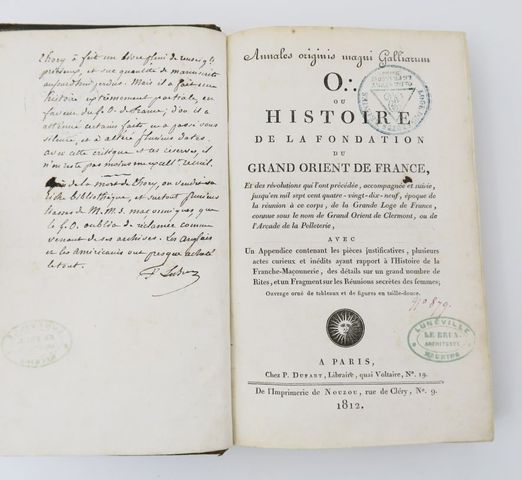 Thory à fait un livre plein de
précieux, et sur quantité de manuscrits
aujourdhui perdus. Mais il a fait une
histoire extrêmement partiale, en
faveur du g. O. de France; d'où il a
certains faits, en a passé sous
silence, et a altéré plusieurs dates.
avec cette critique et ces réserves, il
n'en reste pas moins un recueil.
de la mort de Thory, on vendit sa
bibliothèque, et surtout plusieurs
de M.S.S. maçonniques que
le g. O. oublia de réclamer comme
venant de ses archives. Les anglais
et les américains ont presque acheté
le tout.
Annales originis magni Galliarum
O∴
OU
HISTOIRE
DE LA FONDATION
DU
GRAND ORIENT DE FRANCE,
Et des révolutions qui l'ont précédée, accompagnée et suivie,
jusqu'en mil sept cent quatre-vingt-dix-neuf, époque de
la réunion à ce corps, de la Grande Loge de France,
connue sous le nom de Grand Orient de Clermont, ou de
l'Arcade de la Pelleterie,
AVEC
Un Appendice contenant les pièces justificatives, plusieurs
actes curieux et inédits ayant rapport à l'Histoire de la
Franche-Maçonnerie, des détails sur un grand nombre de
Rites, et un Fragment sur les Réunions secrètes des femmes;
Ouvrage orné de tableaux et de figures en taille-douce.
N° 879.
LUNÉVILLE
LE BRUN
ARCHITECTE
MEURTHE
A PARIS,
Chez P. DUFART, Libraire, quai Voltaire, N°. 19.
De l'Imprimerie de NOUZOU, rue de Cléry, N°. 9.
1812.